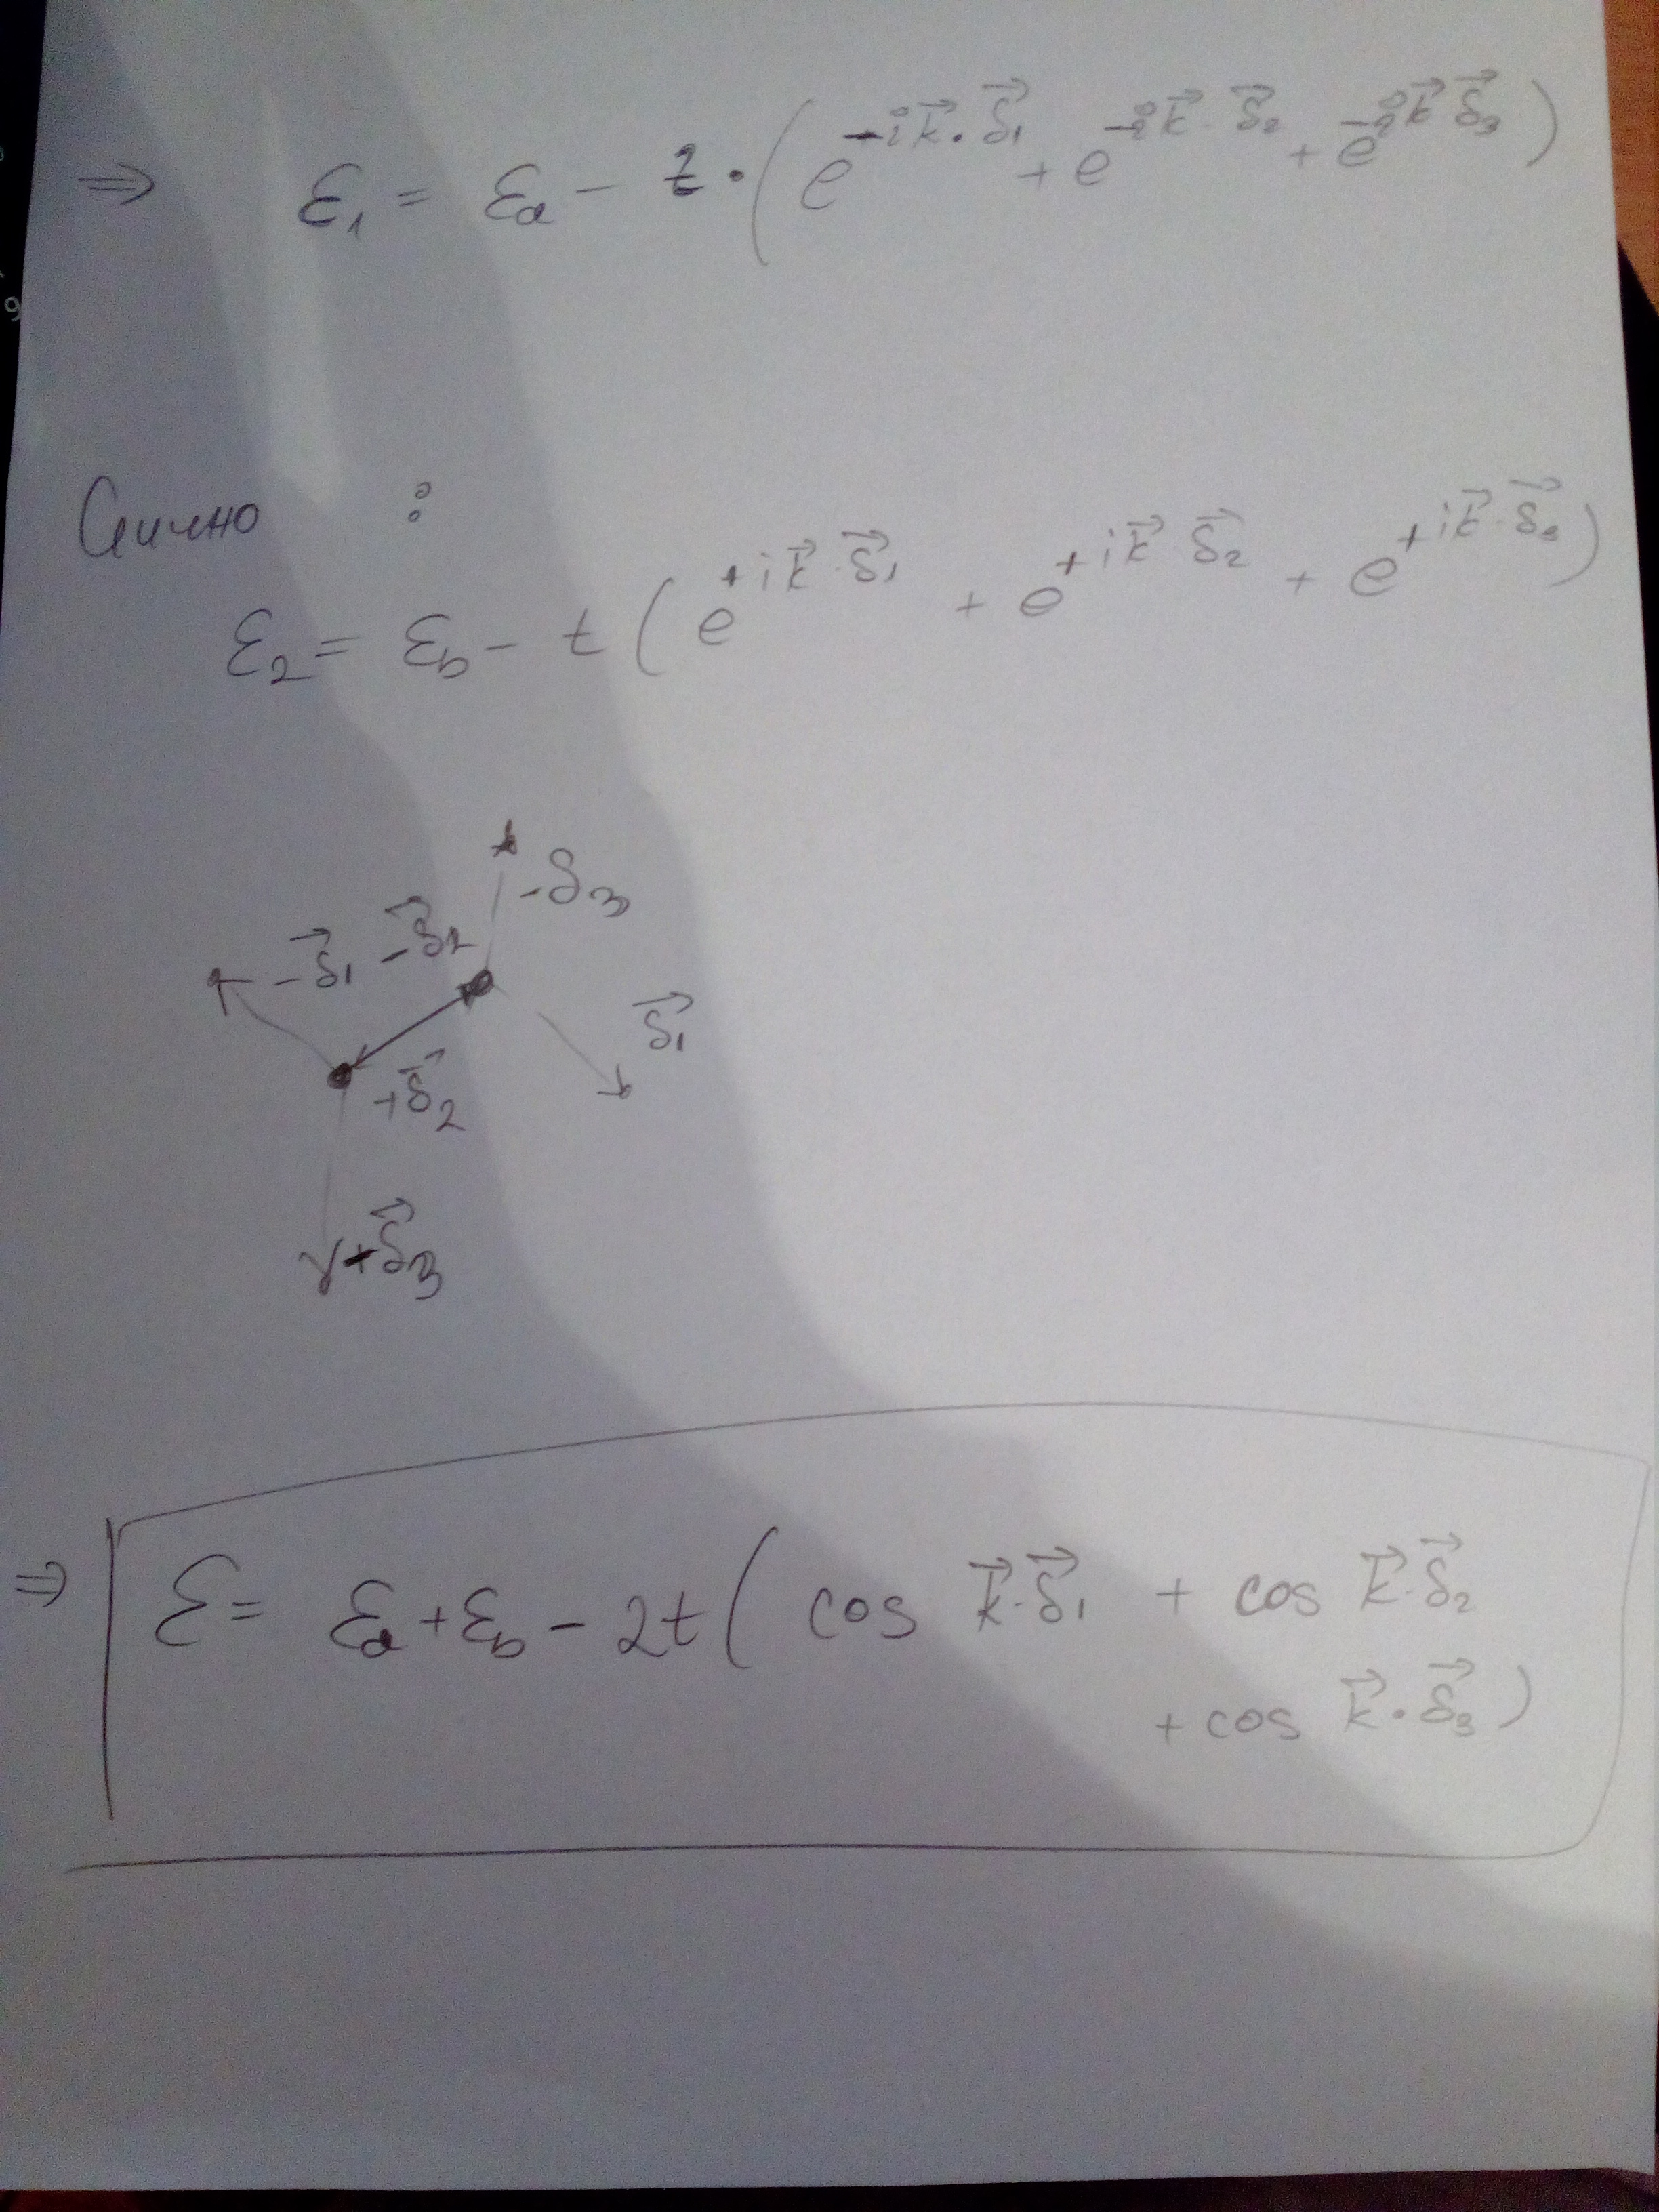 ⇒ ε₁ = εa − t · ( e^{-i k⃗ · δ⃗₁} + e^{-i k⃗ · δ⃗₂} + e^{-i k⃗ δ⃗₃} )
:
ε₂ = εb − t ( e^{+i k⃗ · δ⃗₁} + e^{+i k⃗ δ⃗₂} + e^{+i k⃗ · δ⃗₃} )
-δ₃
-δ⃗₁ -δ⃗₂
δ⃗₁
+δ⃗₂
+δ⃗₃
⇒ ε = εa + εb − 2t ( cos k⃗·δ⃗₁ + cos k⃗·δ⃗₂
+ cos k⃗·δ⃗₃ )